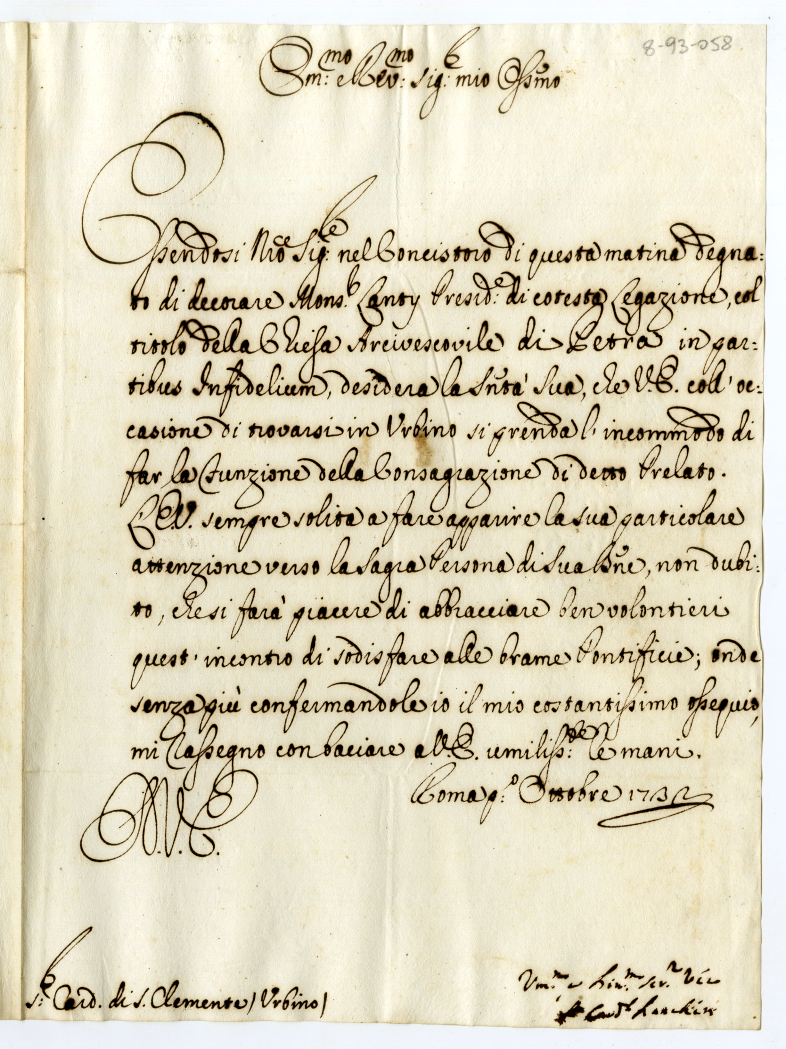 8-93-058
Em:mo e Rev:mo Sig:r mio Oss:mo
Essendosi Nro Sig:re nel Concistoro di questa matina degna:
to di decorare Mons:r Lanty Presid:e di cotesta Legazione, col
titolo della Chiesa Arcivescovile di Petra in par:
tibus Infidelium, desidera la Sntà Sua, che V.E. coll' oc:
casione di trovarsi in Urbino si prenda l' incommodo di
far la Funzione della Consagrazione di detto Prelato.
L'E.V. sempre solita a fare apparire la sua particolare
attenzione verso la Sagra Persona di Sua Bne, non dubi:
to, che si farà piacere di abbracciare ben volontieri
quest' incontro di sodisfare alle brame Pontificie; onde
senza più confermandole io il mio costantissimo ossequio,
mi rassegno con baciare all'E.V. umiliss:te le mani.
Roma p:o Ottobre 1732
V.E.
S:r Card. di S. Clemente / Urbino /
Um:mo e Div:mo ser:re Vero